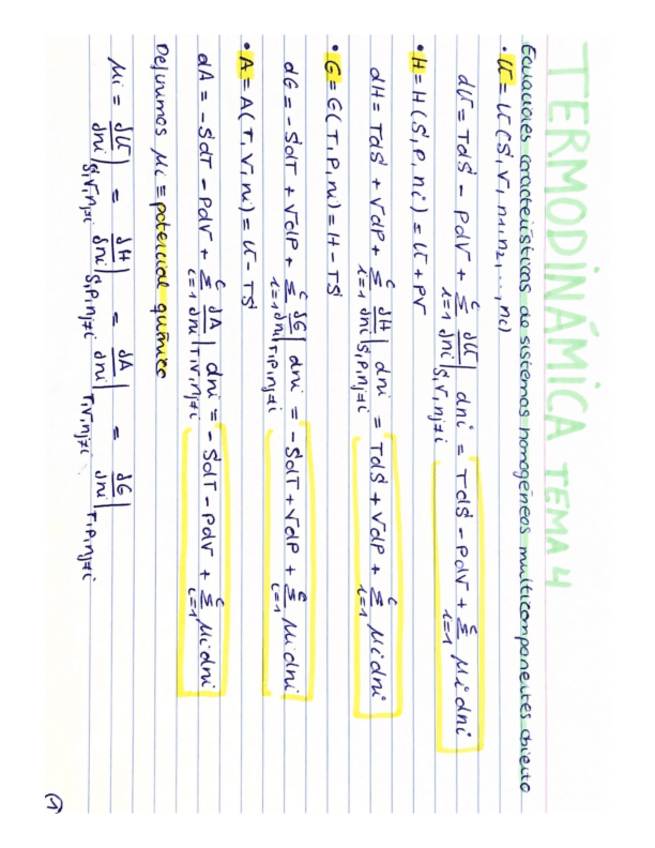 TERMODINÁMICA TEMA 4
Ecuaciones características de sistemas homogéneos multicomponentes abierto
• U = U(S, V, n1, n2, ..., nc)
dU = TdS - PdV + Σ_{i=1}^{c} ∂U/∂ni|S,V,nj≠i dni = TdS - PdV + Σ_{i=1}^{c} μi dni
• H = H(S, P, ni) = U + PV
dH = TdS + VdP + Σ_{i=1}^{c} ∂H/∂ni|S,P,nj≠i dni = TdS + VdP + Σ_{i=1}^{c} μi dni
• G = G(T, P, ni) = H - TS
dG = -SdT + VdP + Σ_{i=1}^{c} ∂G/∂ni|T,P,nj≠i dni = -SdT + VdP + Σ_{i=1}^{c} μi dni
• A = A(T, V, ni) = U - TS
dA = -SdT - PdV + Σ_{i=1}^{c} ∂A/∂ni|T,V,nj≠i dni = -SdT - PdV + Σ_{i=1}^{c} μi dni
Definimos μi ≡ potencial químico
μi = ∂U/∂ni|S,V,nj≠i = ∂H/∂ni|S,P,nj≠i = ∂A/∂ni|T,V,nj≠i = ∂G/∂ni|T,P,nj≠i
1